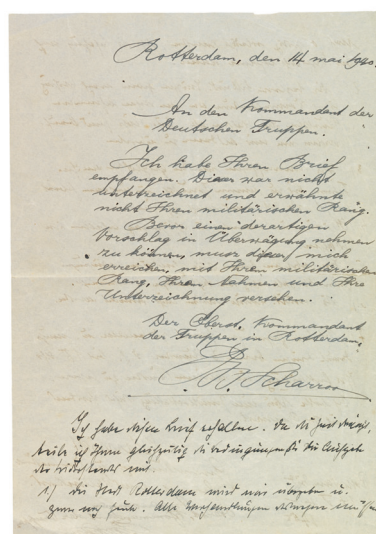 Rotterdam, den 14 mai 1940.
An den Kommandant der
Deutschen Truppen.
Ich habe Ihren Brief
empfangen. Dieser war nicht
unterzeichnet und erwähnte
nicht Ihren militärischen Rang.
Bevor einen derartigen
Vorschlag in Überwägung nehmen
zu können, muss dieser mich
erreichen, mit Ihren militärischen
Rang, Ihren Nahmen und Ihre
Unterzeichnung versehen.
Der Oberst, Kommandant
der Truppen in Rotterdam,
Scharroo
Ich habe diesen Brief erhalten. Da die Zeit drängt,
teile ich Ihnen gleichzeitig die Bedingungen für die Aufgabe
des Widerstandes mit.
1) die Stadt Rotterdam wird uns übergeben u.